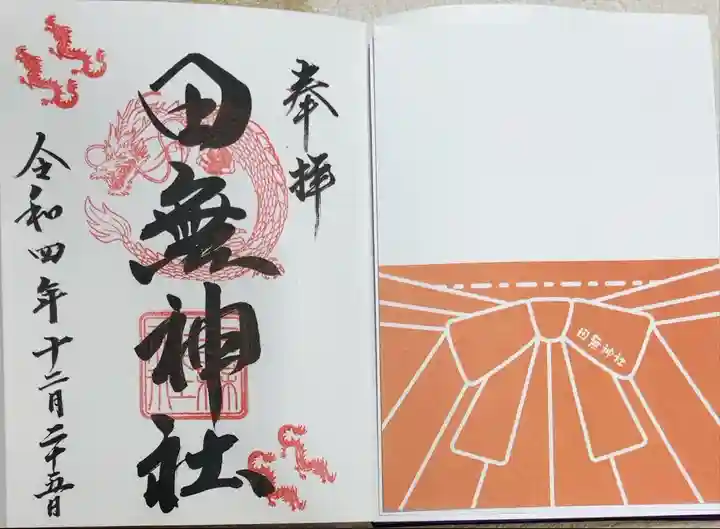 奉拝
田無神社
令和四年十二月二十五日
田無神社